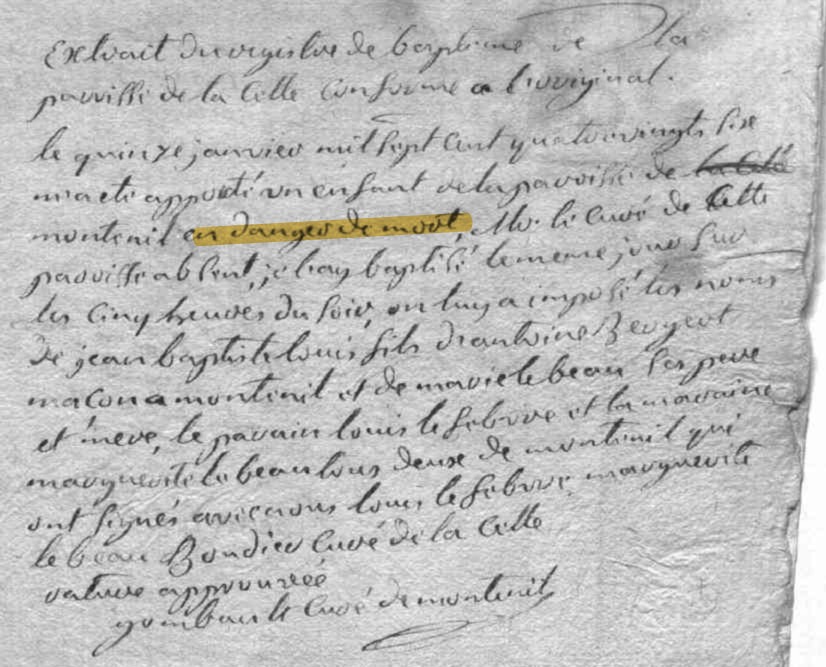 Extrait du registre de baptême de la
paroisse de la Celle conforme a l'original.
le quinze janvier mil sept cent quatrevingts six
m'a eté apporté un enfant de la paroisse de la Celle
montenil en danger de mort, Mr. le Curé de Cette
paroisse absent, je l'ay baptisé le meme jour sur
les cinq heures du soir, on luy a imposé les noms
de jean baptiste louis fils d'antoine Bergeot
macon a montenil et de marie le beau ses pere
et mere, le parain louis le febvre et la maraine
marguerite le beau tous deux de montenil qui
ont signés avec nous louis le febvre, marguerite
le beau Bondier Curé de la Celle
rature approuvée
gombault Curé de montenil